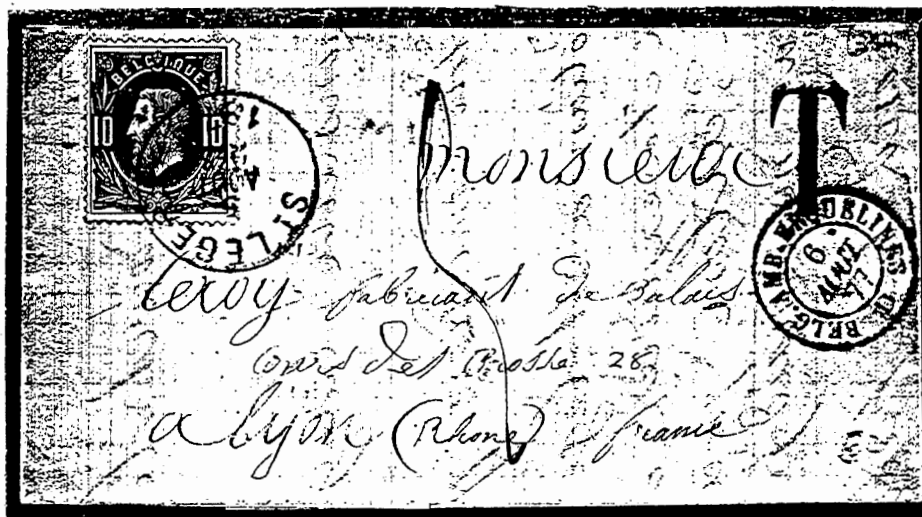 BELGIQUE
10 10
ST LEGE
T
monsieur
BELG. AMB. ERQUELINES
6 AOUT 77
leroy fabricant de balais
cours des brosse 28
a lyon (Rhone) france